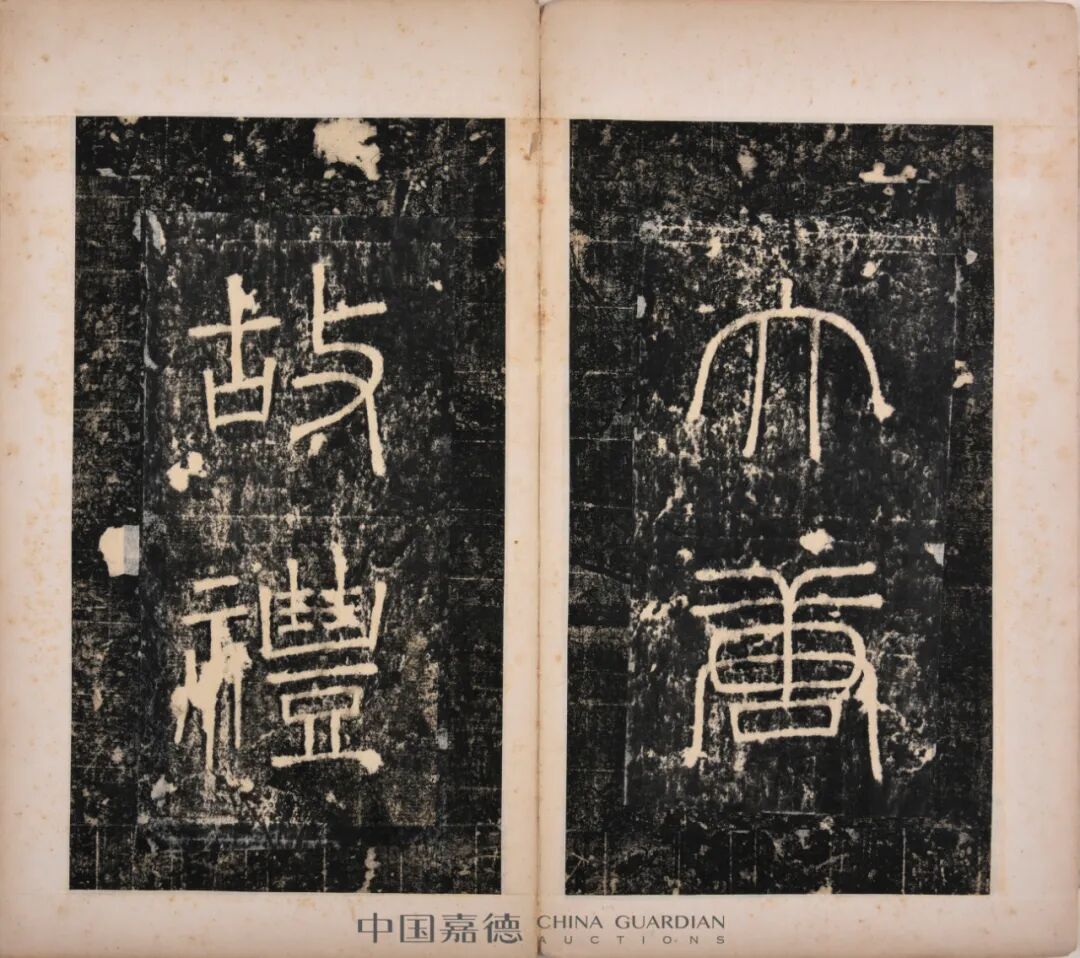 大唐
故禮
中国嘉德 CHINA GUARDIAN
AUCTIONS